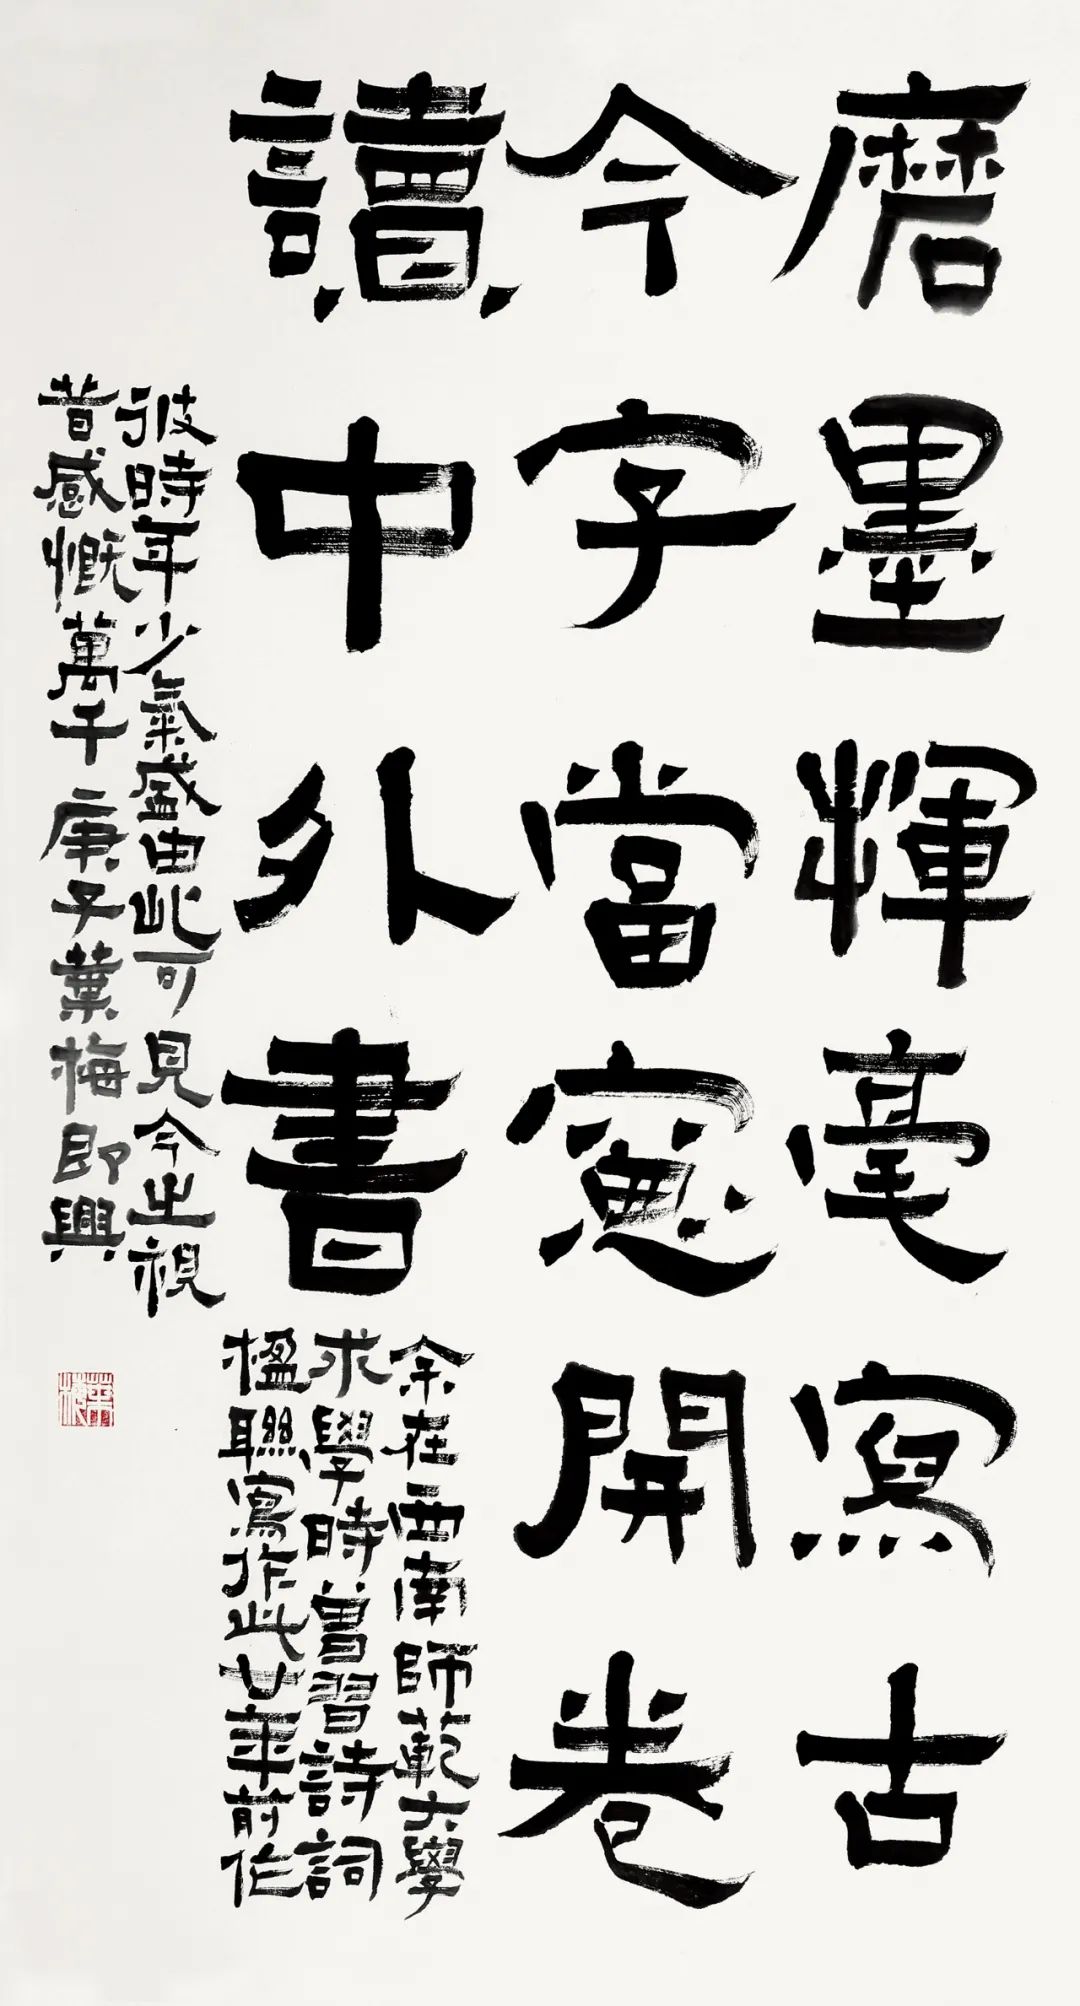 磨墨揮毫寫古
今字當窻開卷
讀中外書
余在西南師範大學
求學時曾習詩詞
楹聯寫作此廿年前作
彼時年少氣盛由此可見今之視
昔感慨萬千庚子葉梅即興
葉梅